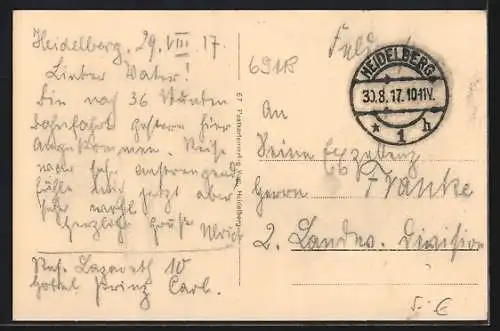 Heidelberg, 29. VIII. 17.
Lieber Vater!
Bin nach 36 Stunden
Bahnfahrt gestern hier
angekommen. Reise
war sehr anstrengend
fühle mich jetzt aber
sehr wohl.
Herzliche Grüße Ulrich
Res. Lazareth 10
Hotel Prinz Carl.
67 Postkartenverlag Heidelberg
6911B
HEIDELBERG
30.8.17.10-11V.
* 1 h
An
Seine Exzellenz
Herrn Franke
2. Landw. Division
5.- €